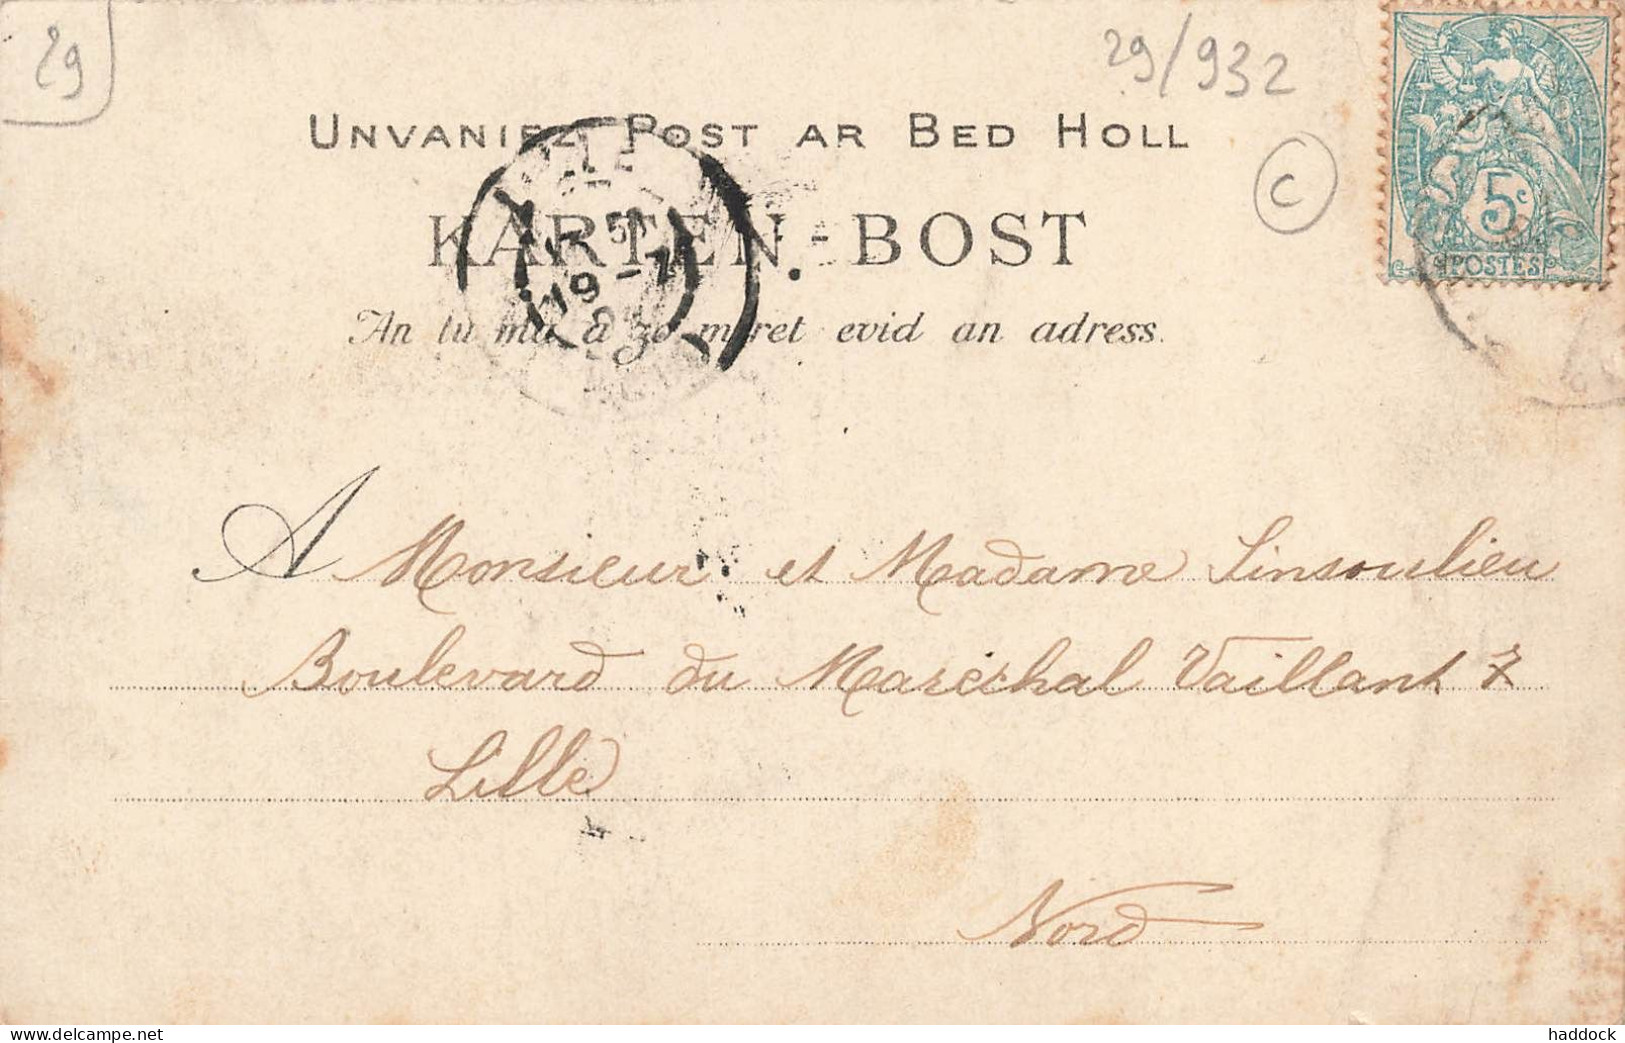 29
29/932
UNVANIEZ POST AR BED HOLL
C
KARTEN-BOST
An tu ma a zo meret evid an adress.
5c
POSTES
19-7
A Monsieur et Madame Sinsoulieu
Boulevard du Maréchal Vaillant 7
Lille
Nord
www.delcampe.net
haddock